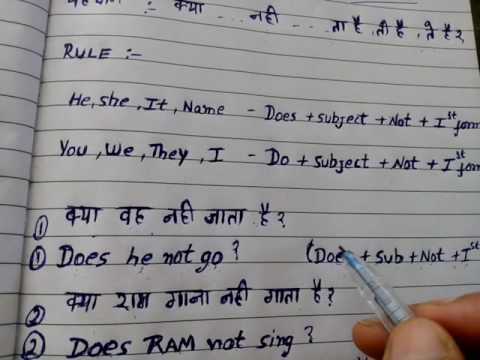 क्या .. नही ... ता है, ती है, ते है?
RULE :-
He, she, It, Name - Does + subject + Not + Ist form
You, We, They, I - Do + subject + Not + Ist form
① क्या वह नही जाता है?
① Does he not go? (Does + Sub + Not + Ist
② क्या राम गाना नही गाता है?
② Does RAM not sing?